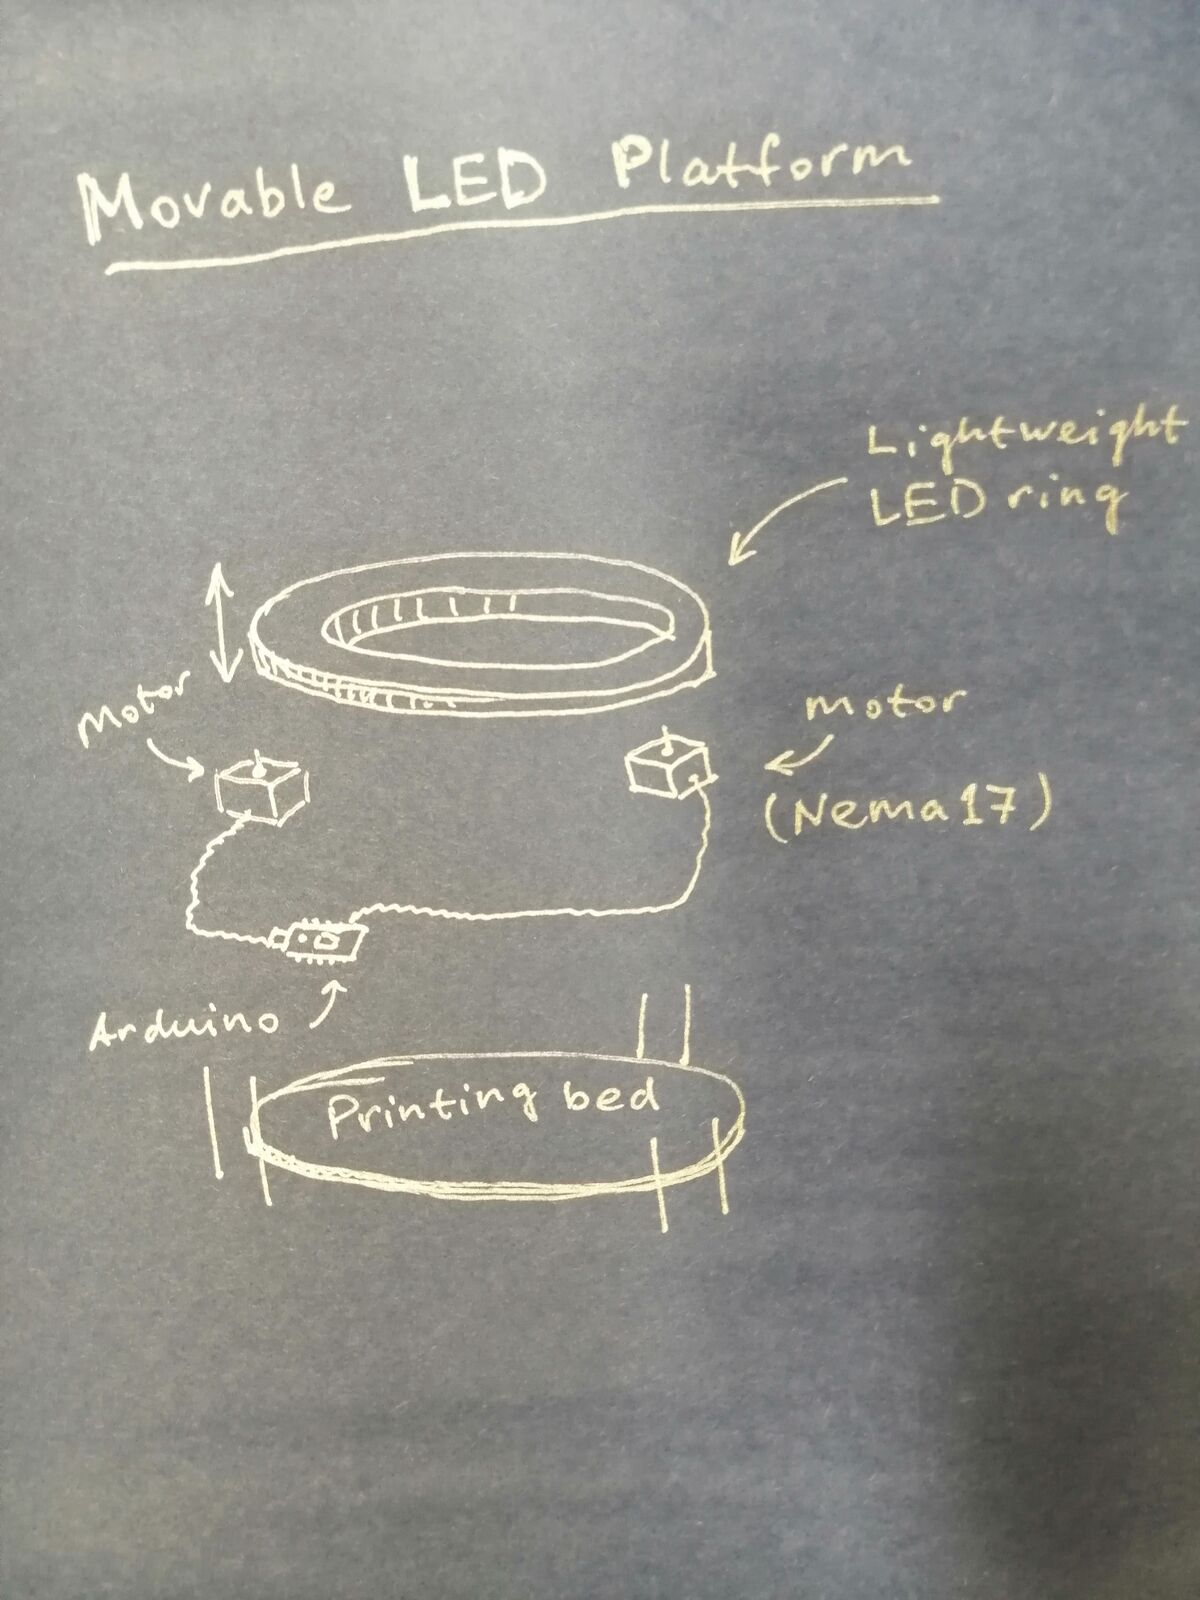 Movable LED Platform
Lightweight
LED ring
Motor
motor
(Nema 17)
Arduino
Printing bed